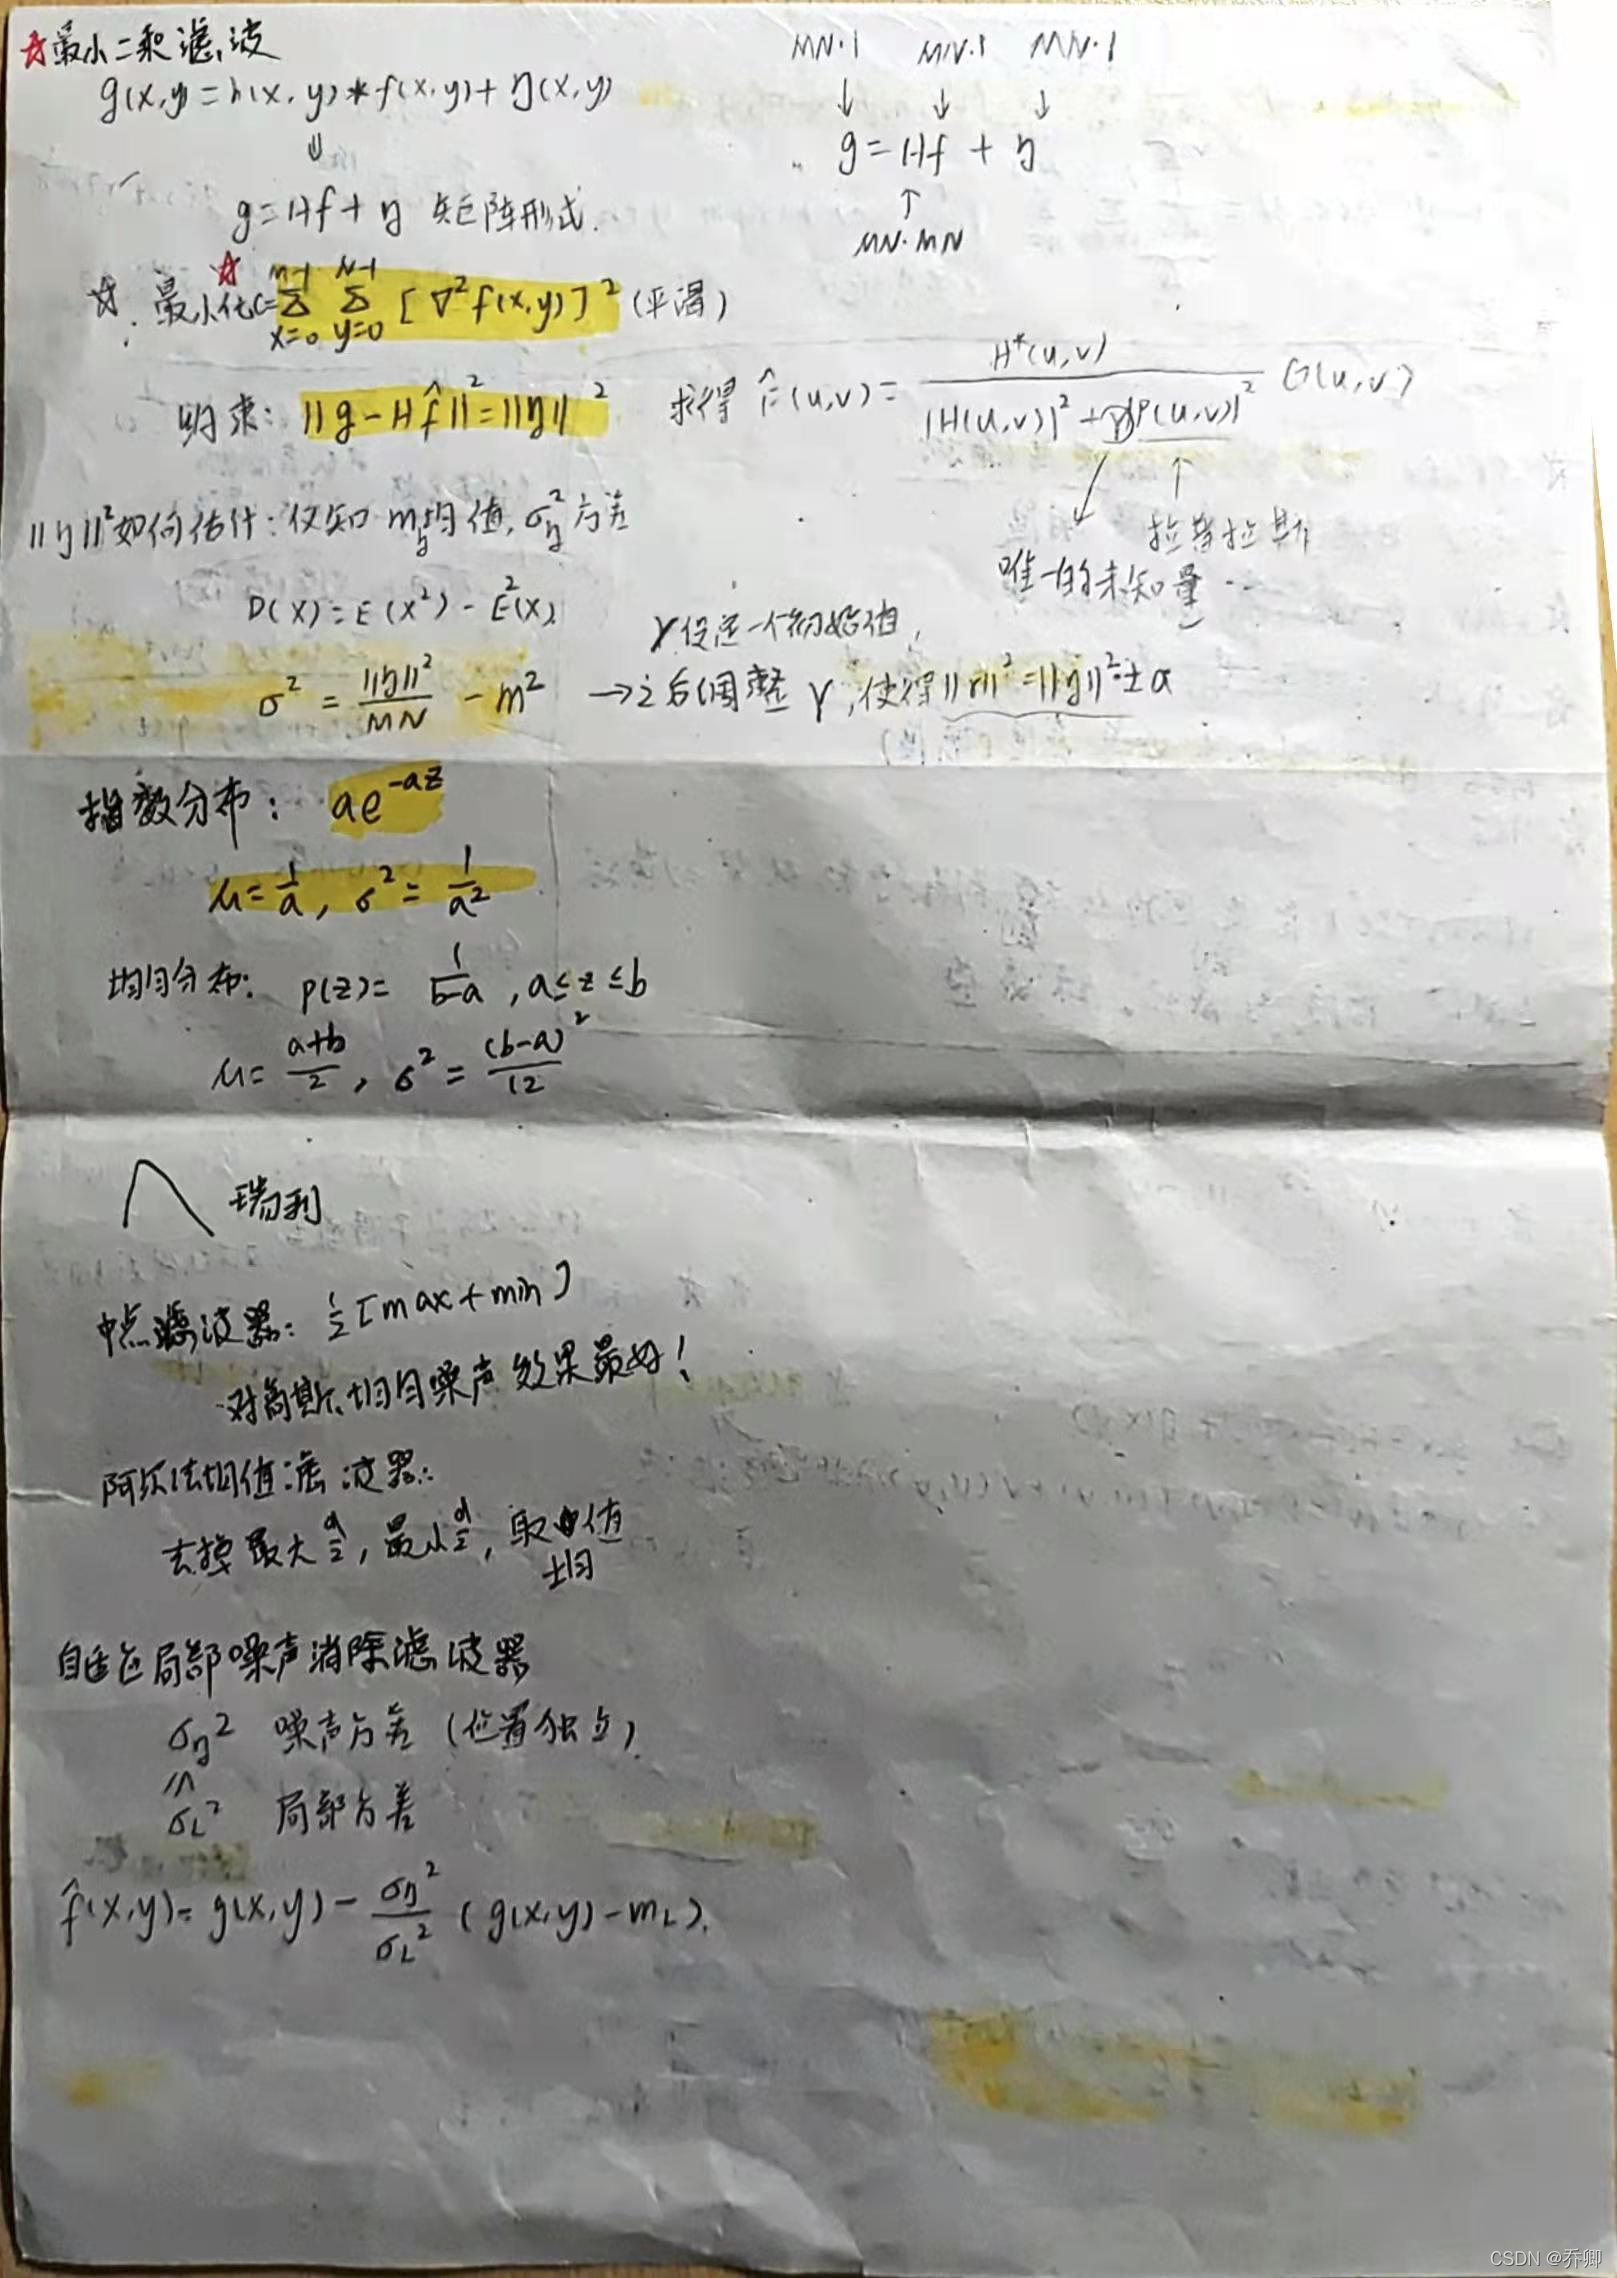 ☆最小二乘滤波
g(x,y)=h(x,y)*f(x,y)+η(x,y)
⇓
g=Hf+η 矩阵形式.
MN·1 MN·1 MN·1
↓ ↓ ↓
g=Hf+η
↑
MN·MN
☆. 最小化C=Σ_{x=0}^{M-1} Σ_{y=0}^{N-1} [∇²f(x,y)]² (平滑)
约束: ||g-Hf̂||²=||η||² 求得 F̂(u,v)= H*(u,v) / (|H(u,v)|²+γ|P(u,v)|²) G(u,v)
拉普拉斯
唯一的未知量
||η||²如何估计: 仅知 m_η均值, σ_η²方差
D(X)=E(X²)-E²(X)
γ设定一个初始值,
σ² = ||η||²/MN - m² →之后调整γ,使得||r||²=||η||²±a
指数分布: ae^{-az}
μ=1/a, σ²=1/a²
均匀分布: p(z)= 1/(b-a), a≤z≤b
μ=(a+b)/2, σ²=(b-a)²/12
瑞利
中点滤波器: ½[max+min]
对高斯、均匀噪声效果最好!
阿尔法均值滤波器:
去掉最大d/2,最小d/2,取值
均
自适应局部噪声消除滤波器
σ_η² 噪声方差 (位置独立)
≤
σ_L² 局部方差
f̂(x,y)=g(x,y)-σ_η²/σ_L² (g(x,y)-m_L).
CSDN @乔卿